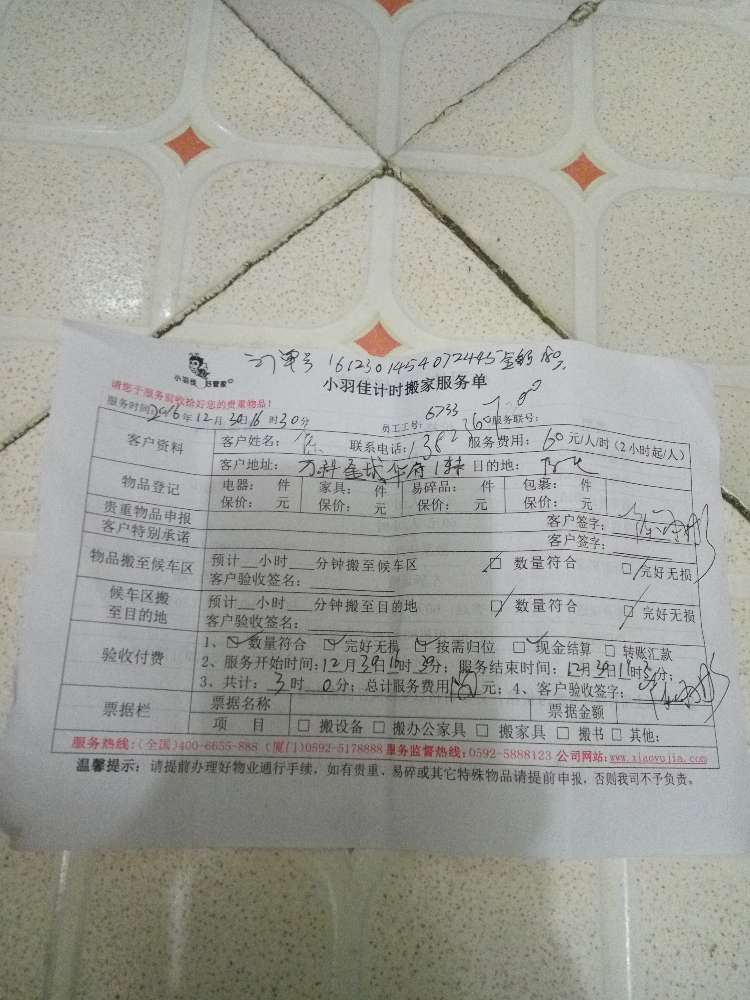 订单号 161230145407244５金额180
小羽佳 好管家
小羽佳计时搬家服务单
请您于服务前收拾好您的贵重物品!
服务时间:2016年12月30日16时30分 员工工号: 6733 服务联号:
客户资料 客户姓名: 联系电话: 服务费用: 60元/人/时(2小时起/人)
客户地址: 目的地:
物品登记 电器: 件 家具: 件 易碎品: 件 包裹: 件
保价: 元 保价: 元 保价: 元 保价: 元
贵重物品申报 客户签字:
客户特别承诺 客户签字:
物品搬至候车区 预计__小时___分钟搬至候车区 □ 数量符合 □ 完好无损
客户验收签名:
候车区搬至目的地 预计__小时___分钟搬至目的地 □ 数量符合 □ 完好无损
客户验收签名:
验收付费 1、☑ 数量符合 ☑ 完好无损 ☑ 按需归位 ☑ 现金结算 □ 转账汇款
2、服务开始时间:12月30日16时30分; 服务结束时间:12月30日1时分;
3、共计: 3时 0分; 总计服务费用 元; 4、客户验收签字:
票据栏 票据名称 票据金额
项 目 □ 搬设备 □ 搬办公家具 □ 搬家具 □ 搬书 □ 其他:
服务热线:(全国)400-6655-888 (厦门)0592-5178888 服务监督热线:0592-5888123 公司网站:www.xiaoyujia.com
温馨提示: 请提前办理好物业通行手续, 如有贵重、易碎或其它特殊物品请提前申报, 否则我司不予负责。